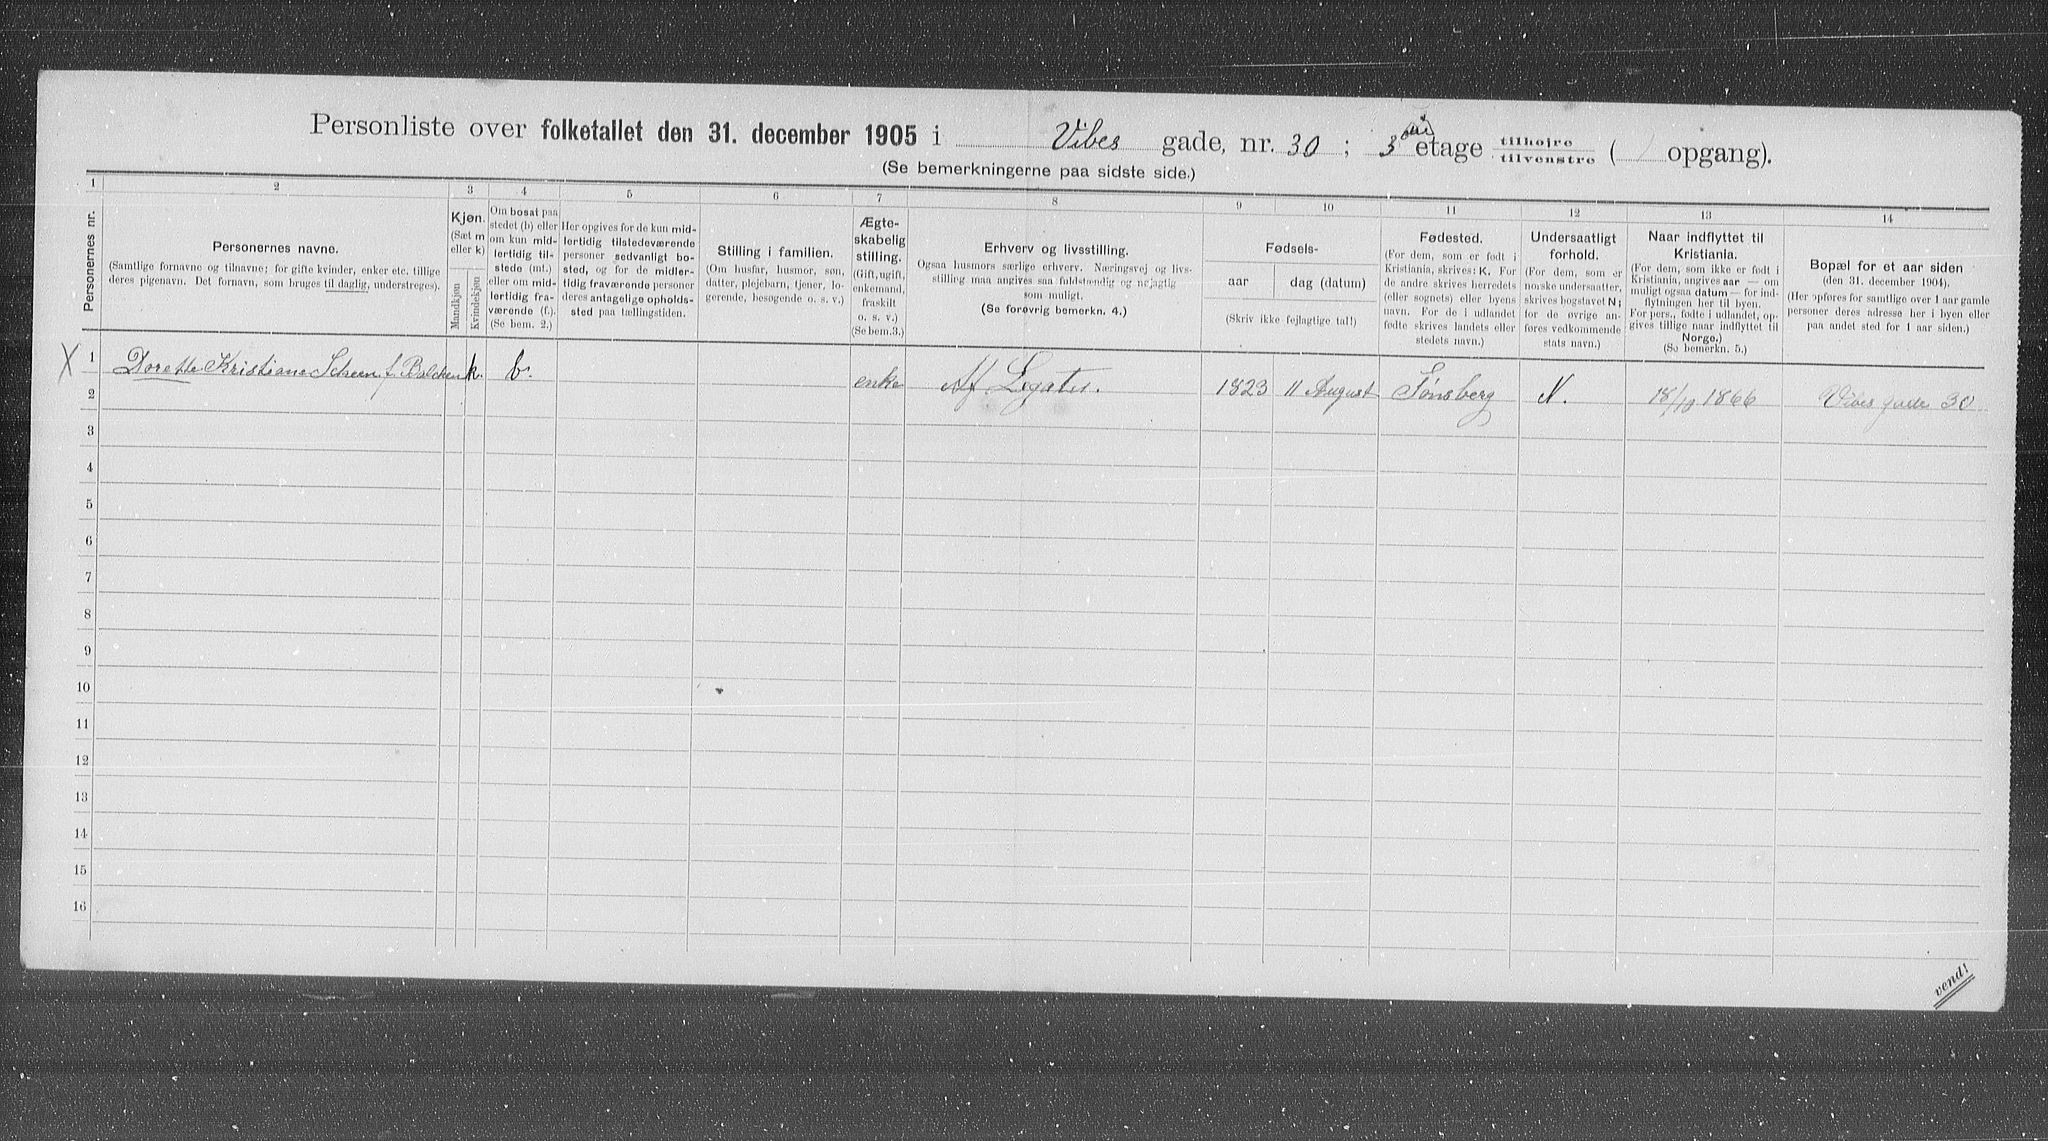 Personliste over folketallet den 31. december 1905 i Vibes gade, nr. 30; 3 etage tilhøire tilvenstre ( opgang).
(Se bemerkningerne paa sidste side.)
1 2 3 4 5 6 7 8 9 10 11 12 13 14
Personernes nr.
Personernes navne.
(Samtlige fornavne og tilnavne; for gifte kvinder, enker etc. tillige
deres pigenavn. Det fornavn, som bruges til daglig, understreges).
Kjøn.
(Sæt m
eller k)
Mandkjøn
Kvindekjøn
Om bosat paa
stedet (b) eller
om kun mid-
lertidig til-
stede (mt.)
eller om mid-
lertidig fra-
værende (f.).
(Se bem. 2.)
Her opgives for de kun mid-
lertidig tilstedeværende
personer sedvanligt bo-
sted, og for de midler-
tidig fraværende personer
deres antagelige opholds-
sted paa tællingstiden.
Stilling i familien.
(Om husfar, husmor, søn,
datter, plejebarn, tjener, lo-
gerende, besøgende o. s. v.)
Ægte-
skabelig
stilling.
(Gift, ugift,
enkemand,
fraskilt
o. s. v.)
(Se bem. 3.)
Erhverv og livsstilling.
Ogsaa husmors særlige erhverv. Næringsvej og livs-
stilling maa angives saa fuldstændig og nøjagtig
som muligt.
(Se forøvrig bemerkn. 4.)
Fødsels-
aar
dag (datum)
(Skriv ikke fejlagtige tal!)
Fødested.
(For dem, som er født i
Kristiania, skrives: K. For
de andre skrives herredets
(eller sognets) eller byens
navn. For de i udlandet
fødte skrives landets eller
stedets navn.)
Undersaatligt
forhold.
(For dem, som er
norske undersaatter,
skrives bogstavet N;
for de øvrige an-
føres vedkommende
stats navn.)
Naar indflyttet til
Kristiania.
(For dem, som ikke er født i
Kristiania, angives aar — om
muligt ogsaa datum — for ind-
flytningen her til byen.
For pers., fødte i udlandet, op-
gives tillige naar indflyttet til
Norge.)
(Se bemerkn. 5.)
Bopæl for et aar siden
(den 31. december 1904).
(Her opføres for samtlige over 1 aar gamle
personer deres adresse her i byen eller
paa andet sted for 1 aar siden.)
X 1 Dorette Kristiane Scheen f. Balchen k. b. enke Af Legater. 1823 11 August Tønsberg N. 18/10 1866 Vibes gade 30
2
3
4
5
6
7
8
9
10
11
12
13
14
15
16
vend!